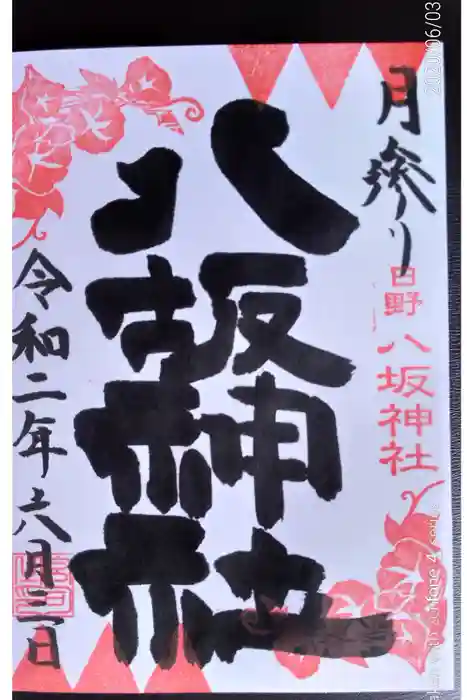 月参り
日野
八坂神社
八坂神社
令和二年六月三日
2020/06/03